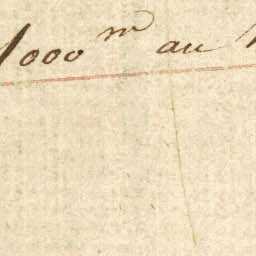 1000 m au